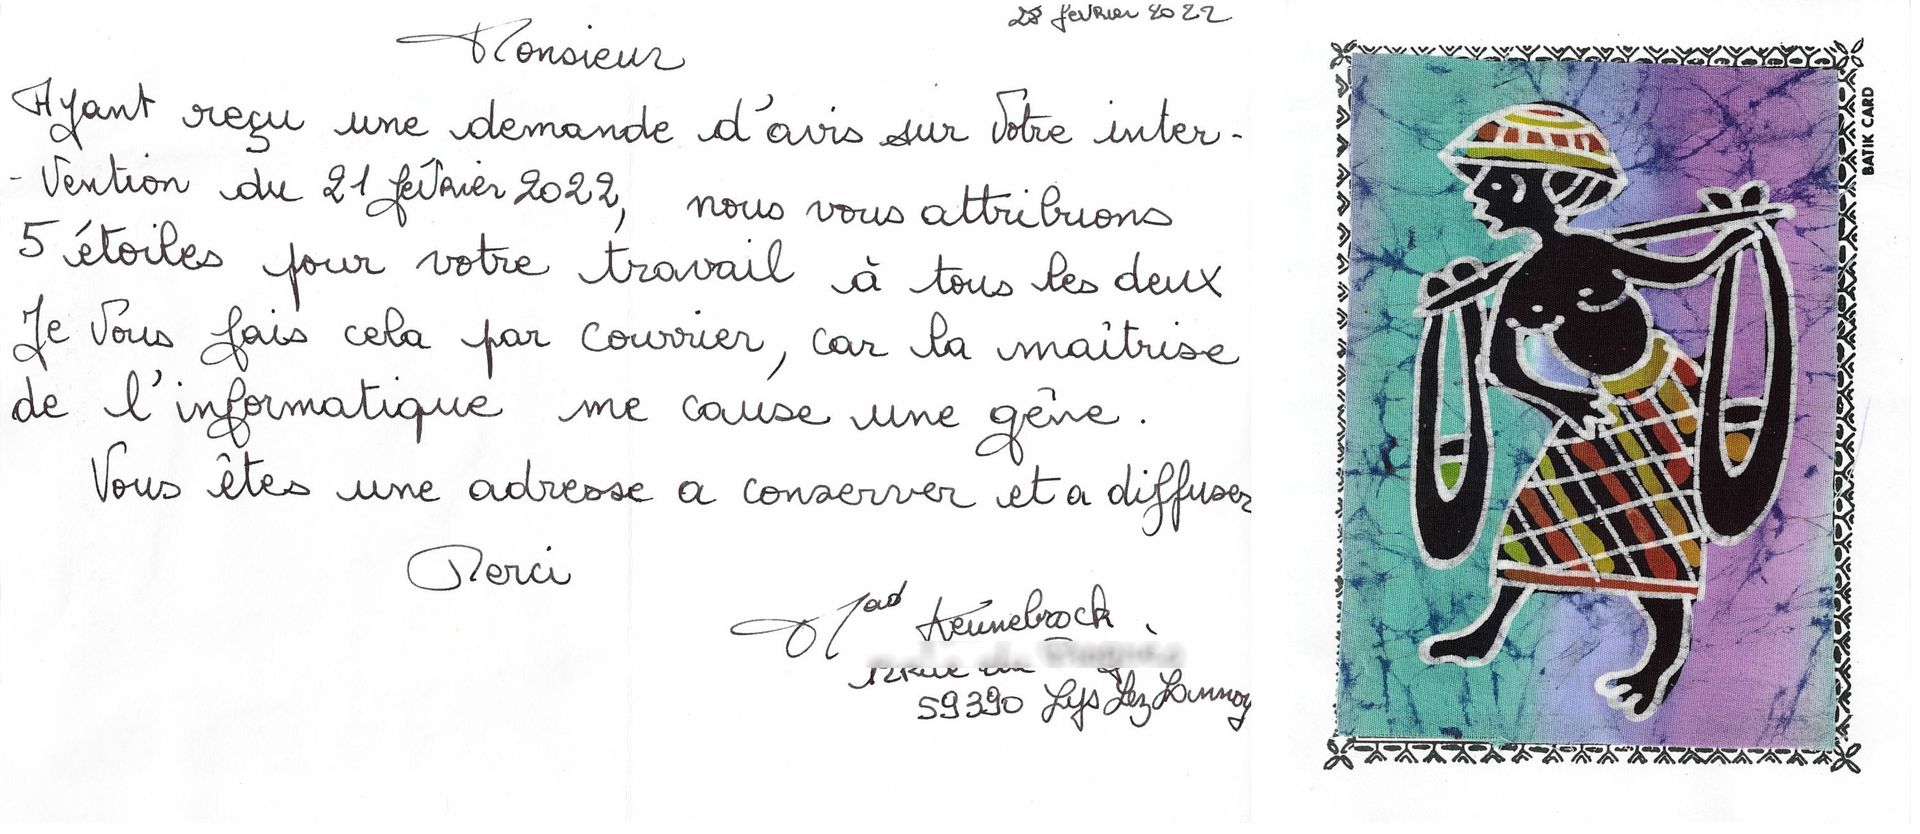 28 fevrier 2022
Monsieur
Ayant reçu une demande d'avis sur Votre inter-
-Vention du 21 février 2022, nous vous attribuons
5 étoiles pour votre travail à tous les deux
Je Vous fais cela par courrier, car la maîtrise
de l'informatique me cause une gêne.
Vous êtes une adresse a conserver et a diffuser
Merci
Mad Keunebrock
59390 Lys Lez Lannoy
BATIK CARD